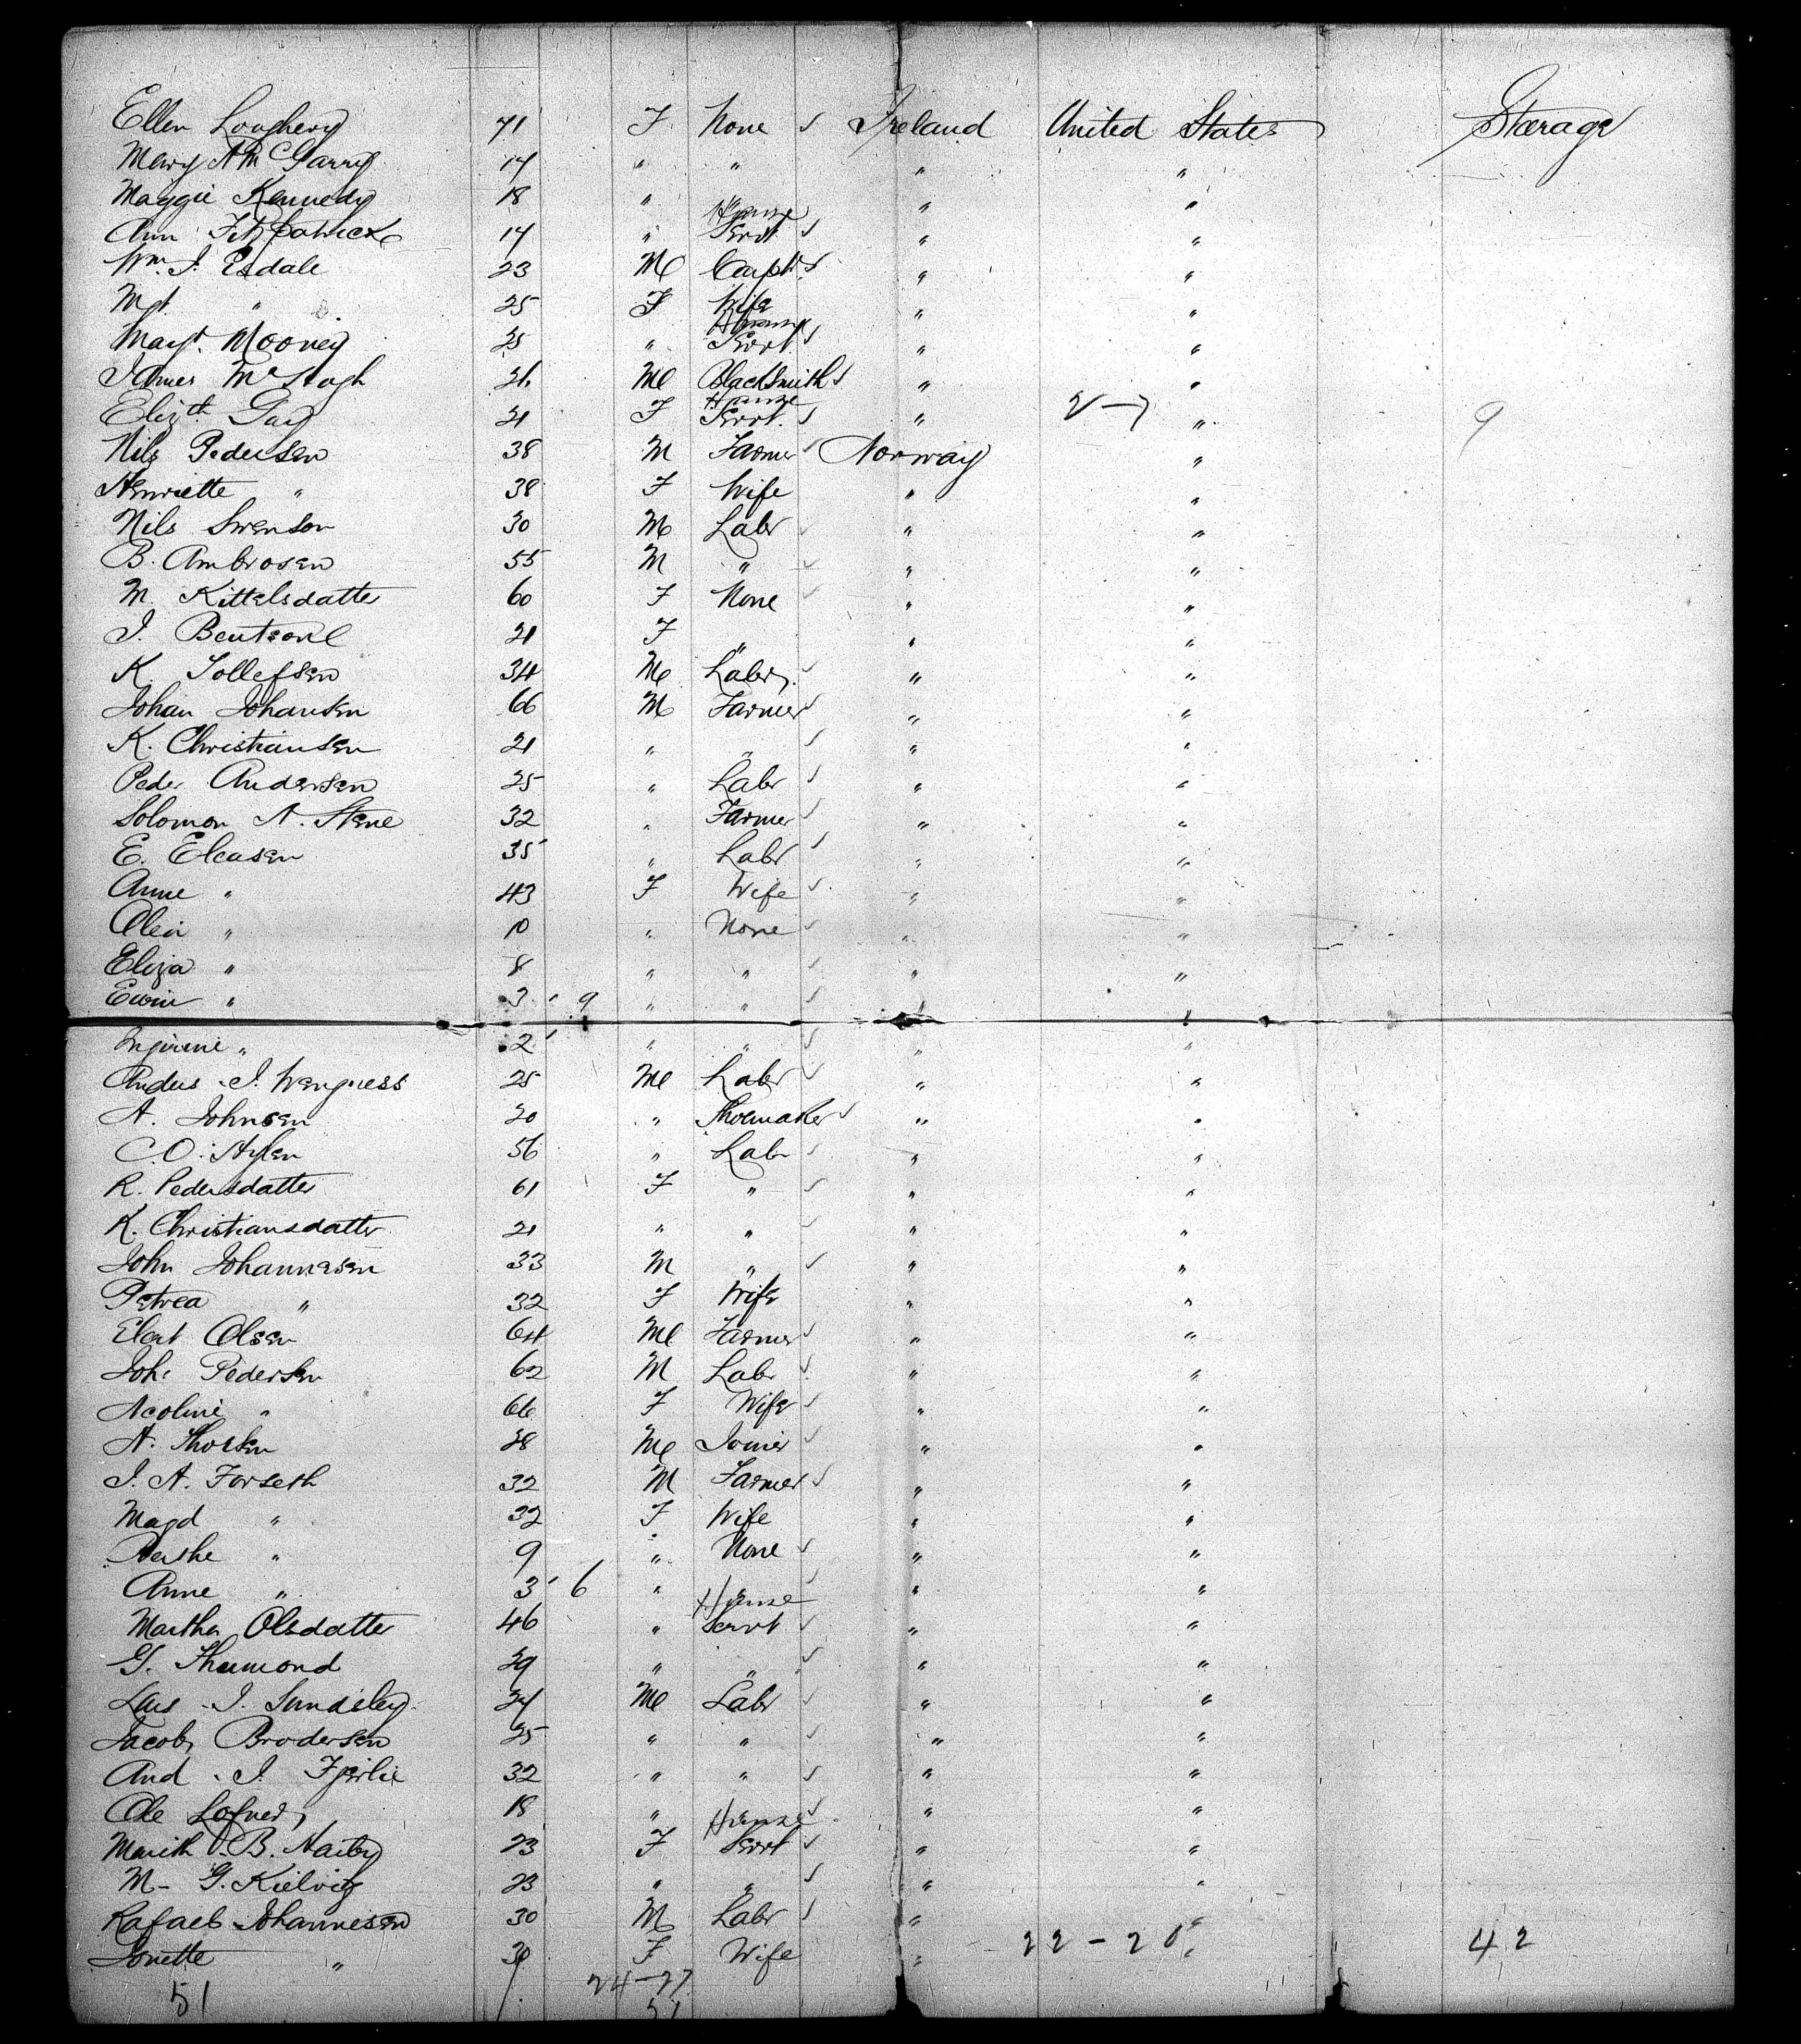 Ellen Loughery 71 F None ✓ Ireland United States Steerage
Mary A McGarry 17 " " " "
Maggie Kennedy 18 " " " "
Ann Fitzpatrick 17 " House Servt ✓ " "
Wm. J. Esdale 23 M Carptr ✓ " "
Mgt " 25 F Wife " "
Margt. Mooney 25 " House Servt. ✓ " "
James McHugh 26 M Blacksmith ✓ " "
Elizth. Gay 21 F House Servt. ✓ " 2-7 " 9
Nils Pedersen 38 M Farmer ✓ Norway "
Henriette " 38 F Wife " "
Nils Swenson 30 M Labr ✓ " "
B. Ambrosen 55 M " ✓ " "
M. Kittelsdatter 60 F None ✓ " "
J. Bentsone 21 F " " "
K. Tollefsen 34 M Labr. ✓ " "
Johan Johansen 66 M Farmer ✓ " "
K. Christiansen 21 " " ✓ " "
Peder Andersen 25 " Labr ✓ " "
Solomon N. Stene 32 " Farmer ✓ " "
E. Eleasen 35 " Labr ✓ " "
Anne " 43 F Wife ✓ " "
Olea " 10 " None ✓ " "
Eliza " 8 " " ✓ " "
" 3 9 " " ✓ " "
" 2 " " ✓ " "
J. Wengness 25 M Labr ✓ " "
A. Johnsen 20 " Shoemaker ✓ " "
C. O. 56 " Labr ✓ " "
R. Pedersdatter 61 F " ✓ " "
K. Christiansdatter 21 " " ✓ " "
John Johannesen 33 M " ✓ " "
Petrea " 32 F Wife " "
Elert Olsen 64 M Farmer ✓ " "
Joh. Pedersen 62 M Labr ✓ " "
Nicoline " 66 F Wife ✓ " "
A. Thorsen 28 M Joiner ✓ " "
J. A. Forseth 32 M Farmer ✓ " "
Magd " 32 F Wife " "
" 9 " None ✓ " "
Anne " 3 6 " " ✓ " "
Martha Olsdatter 46 " House Servt ✓ " "
G. 29 " " ✓ " "
Lars J. 24 M Labr ✓ " "
Jacob Brodersen 25 " " ✓ " "
And J. Fjerlie 32 " " ✓ " "
Ole 18 " " ✓ " "
Marith B. Haiby 23 F House Servt ✓ " "
M- G. Kielvig 23 " " ✓ " "
Rafael Johannesen 30 M Labr ✓ " "
Jonette " 30 F Wife " 22-20 " 42
51 24-27
51